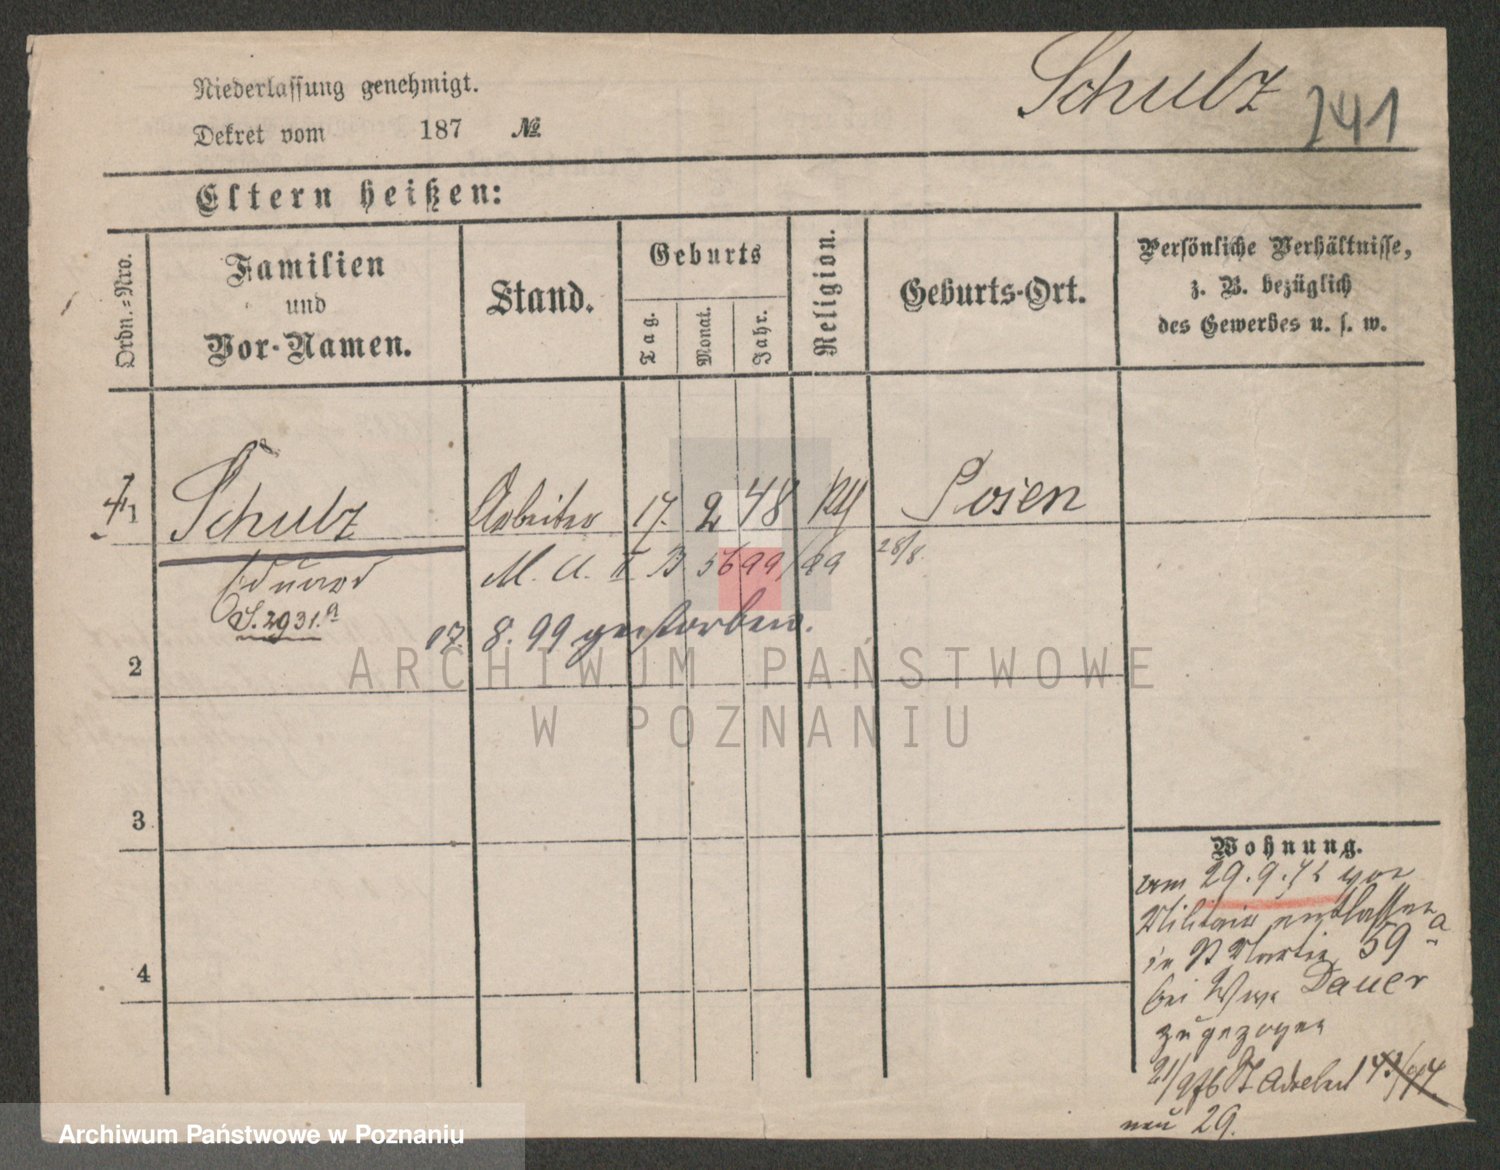 Niederlassung genehmigt.
Schulz 241
Dekret vom 187 №
Eltern heißen:
Ordn.-Nro.
Familien und Vor-Namen.
Stand.
Geburts
Tag. Monat. Jahr.
Religion.
Geburts-Ort.
Persönliche Verhältnisse,
z. B. bezüglich
des Gewerbes u. s. w.
1 Schulz Arbeiter 17. 2 48 Posen
Eduard M. A. II B 5699/99 28/8.
S. 2931.a
17. 8. 99 gestorben.
2
ARCHIWUM PAŃSTWOWE
W POZNANIU
3
4
Wohnung.
am 29.9.72 von
Militair entlassen
in St Martin 59 a
bei Wwe Dauer
zugezogen
21/9 76 St Adalbert
neu 29.
Archiwum Państwowe w Poznaniu